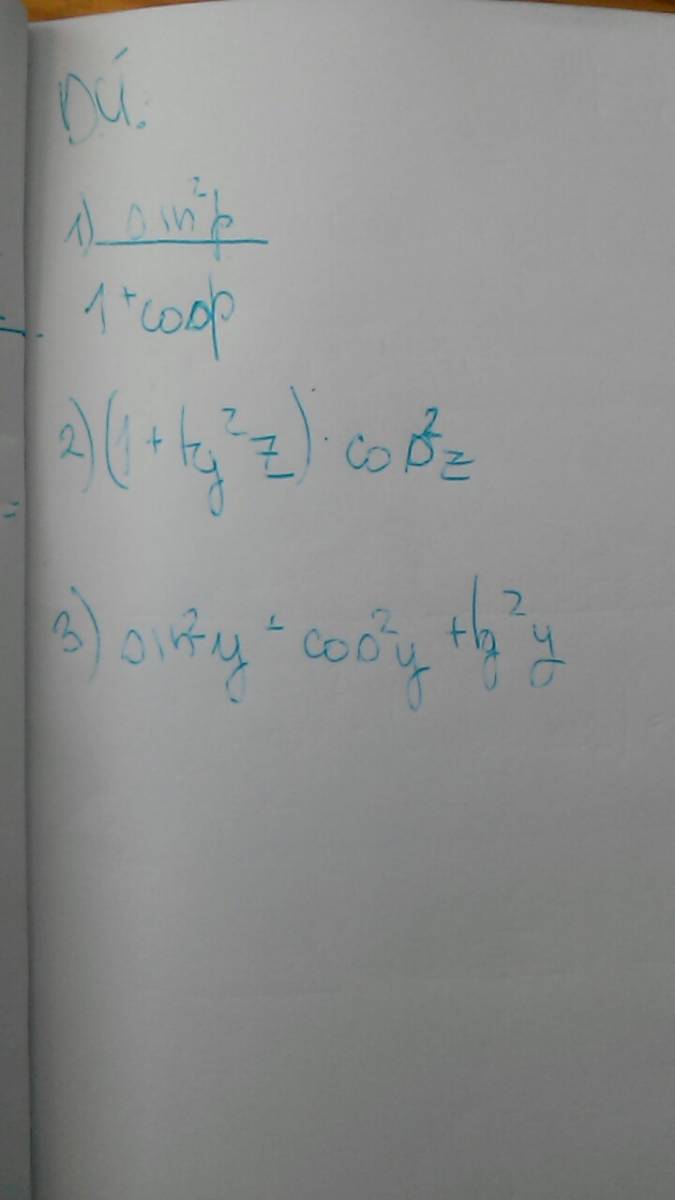 DÚ.
1) sin²p
1+cosp
2) (1+tg²z)·cos²z
3) sin²y + cos²y + tg²y